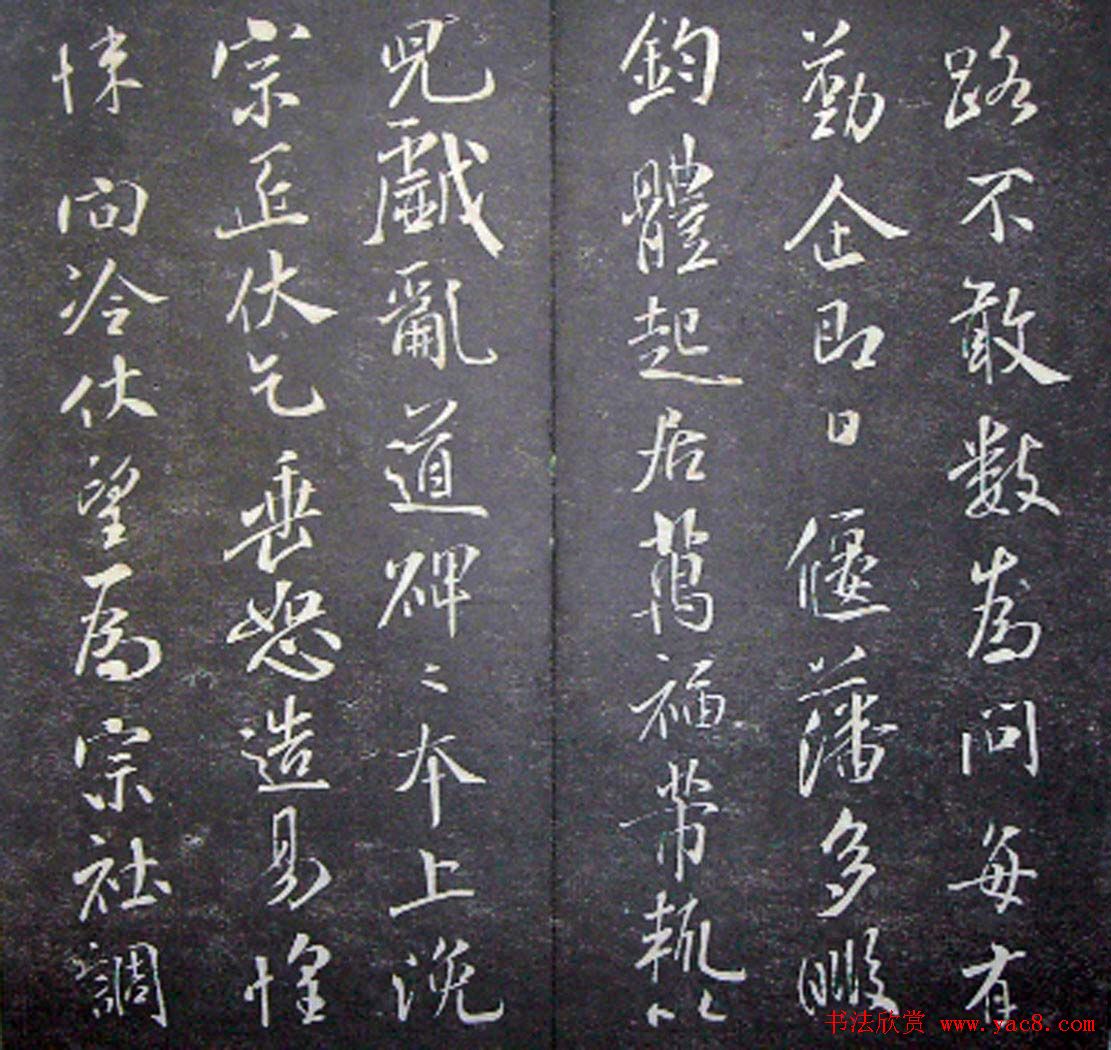 路不敢数为问每有
勤企即日偃藩多暇
钧體起居萬福芾輒以
兒戲亂道碑二本上浼
宗匠伏乞垂恕造易惶
悚向冷伏望為宗社調
书法欣赏 www.yac8.com